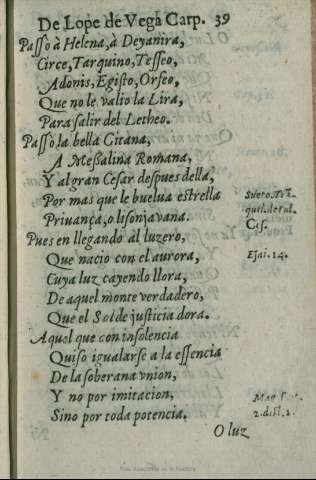 De Lope de Vega Carp. 39
Passò à Helena, à Deyanira,
Circe, Tarquino, Tesseo,
Adonis, Egisto, Orfeo,
Que no le valio la Lira,
Para salir del Letheo.
Passò la bella Gitana,
A Messalina Romana,
Y al gran Cesar despues della,
Por mas que le buelua estrella
Priuança, o lisonja vana.
Pues en llegando al luzero,
Que nacio con el aurora,
Cuya luz cayendo llora,
De aquel monte verdadero,
Que el Sol de justicia dora.
Aquel que con insolencia
Quiso igualarse a la essencia
De la soberana vnion,
Y no por imitacion,
Sino por toda potencia.
Sueto. Trã.
Ces.
Esai. 14.
2. dist. 2.
O luz